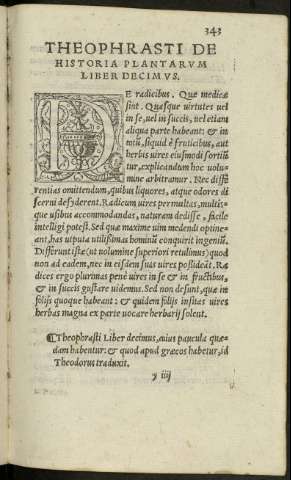 343
THEOPHRASTI DE
HISTORIA PLANTARVM
LIBER DECIMVS.
DE radicibus. Quæ medicæ
sint. Quasque uirtutes uel
in se, uel in succis, uel etiam
aliqua parte habeant: & in
totũ, siquid è fruticibus, aut
herbis uires eiusmodi sortiũ
tur, explicandum hoc uolu-
mine arbitramur. Nec diffe
rentias omittendum, quibus liquores, atque odores di
scerni desyderent. Radicum uires permultas, multis-
que usibus accommodandas, naturam dedisse, facile
intelligi potest. Sed quæ maxime uim medendi optine-
ant, has utputa utilissimas hominũ conquirit ingeniũ.
Differunt istæ (ut uolumine superiori retulimus) quod
non ad eadem, nec in eisdem suas uires possideãt. Ra
dices ergo plurimas penè uires in se & in fructibus,
& in succis gustare uidemus. Sed non desunt, quæ in
folijs quoque habeant: & quidem folijs insitas uires
herbas magna ex parte uocare herbarij solent.
¶ Theophrasti Liber decimus, cuius paucula quæ-
dam habentur: & quod apud græcos habetur, id
Theodorus traduxit.
y iiij